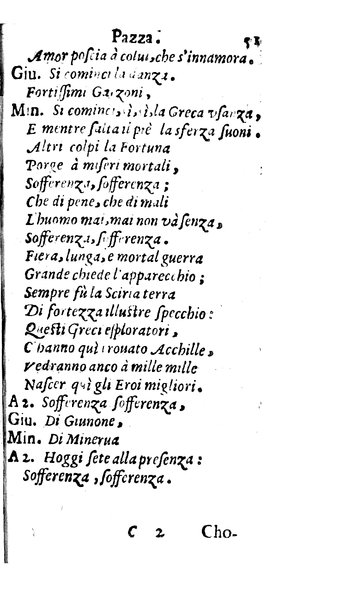 Pazza. 51
Amor poscia à colui, che s'innamora.
Giu. Si cominci la danza.
Fortissimi Garzoni,
Min. Si cominci, sì, sì, la Greca vsanza,
E mentre salta il piè la sferza suoni.
Altri colpi la Fortuna
Porge à miseri mortali,
Sofferenza, sofferenza;
Che di pene, che di mali
L'huomo mai, mai non và senza,
Sofferenza, sofferenza.
Fiera, lunga, e mortal guerra
Grande chiede l'apparecchio;
Sempre fù la Sciria terra
Di fortezza illustre specchio:
Questi Greci esploratori,
C'hanno quì trouato Acchille,
Vedranno anco à mille mille
Nascer quì gli Eroi migliori.
A 2. Sofferenza sofferenza,
Giu. Di Giunone,
Min. Di Minerua
A 2. Hoggi sete alla presenza:
Sofferenza, sofferenza.
C 2 Cho-